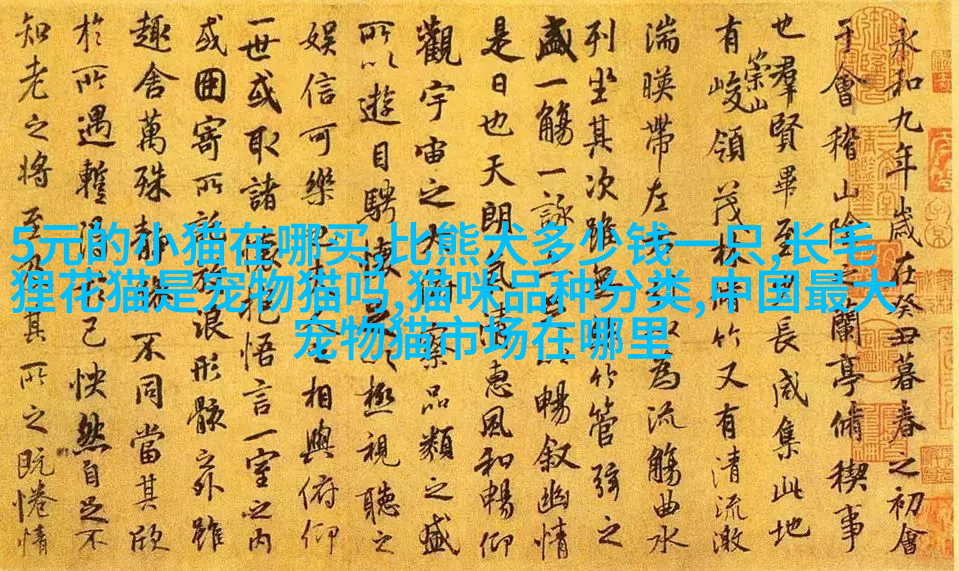 5元的小猫在哪买,比熊犬多少钱一只,长毛
狸花猫是宠物猫吗,猫咪品种分类,中国最大
宠物猫市场在哪里
永和九年歲在癸丑暮春之初會
于會稽山陰之蘭亭脩稧事
也羣賢畢至少長咸集此地
有崇山峻領茂林脩竹又有清流激
湍暎帶左右為流觴曲水
列坐其次雖無竹管弦之
盛一觴一詠暢叙幽情
是日也天朗氣清惠風和暢仰
觀宇宙之大察品類之盛
所以遊目騁懷極視聽之
娛信可樂相與俯仰
一世或取諸懷抱悟言一室之內
或因寄所託放浪形骸之外雖
趣舍萬殊靜不同當其欣
於所遇蹔得己快然自足不
知老之將至其所之既惓情